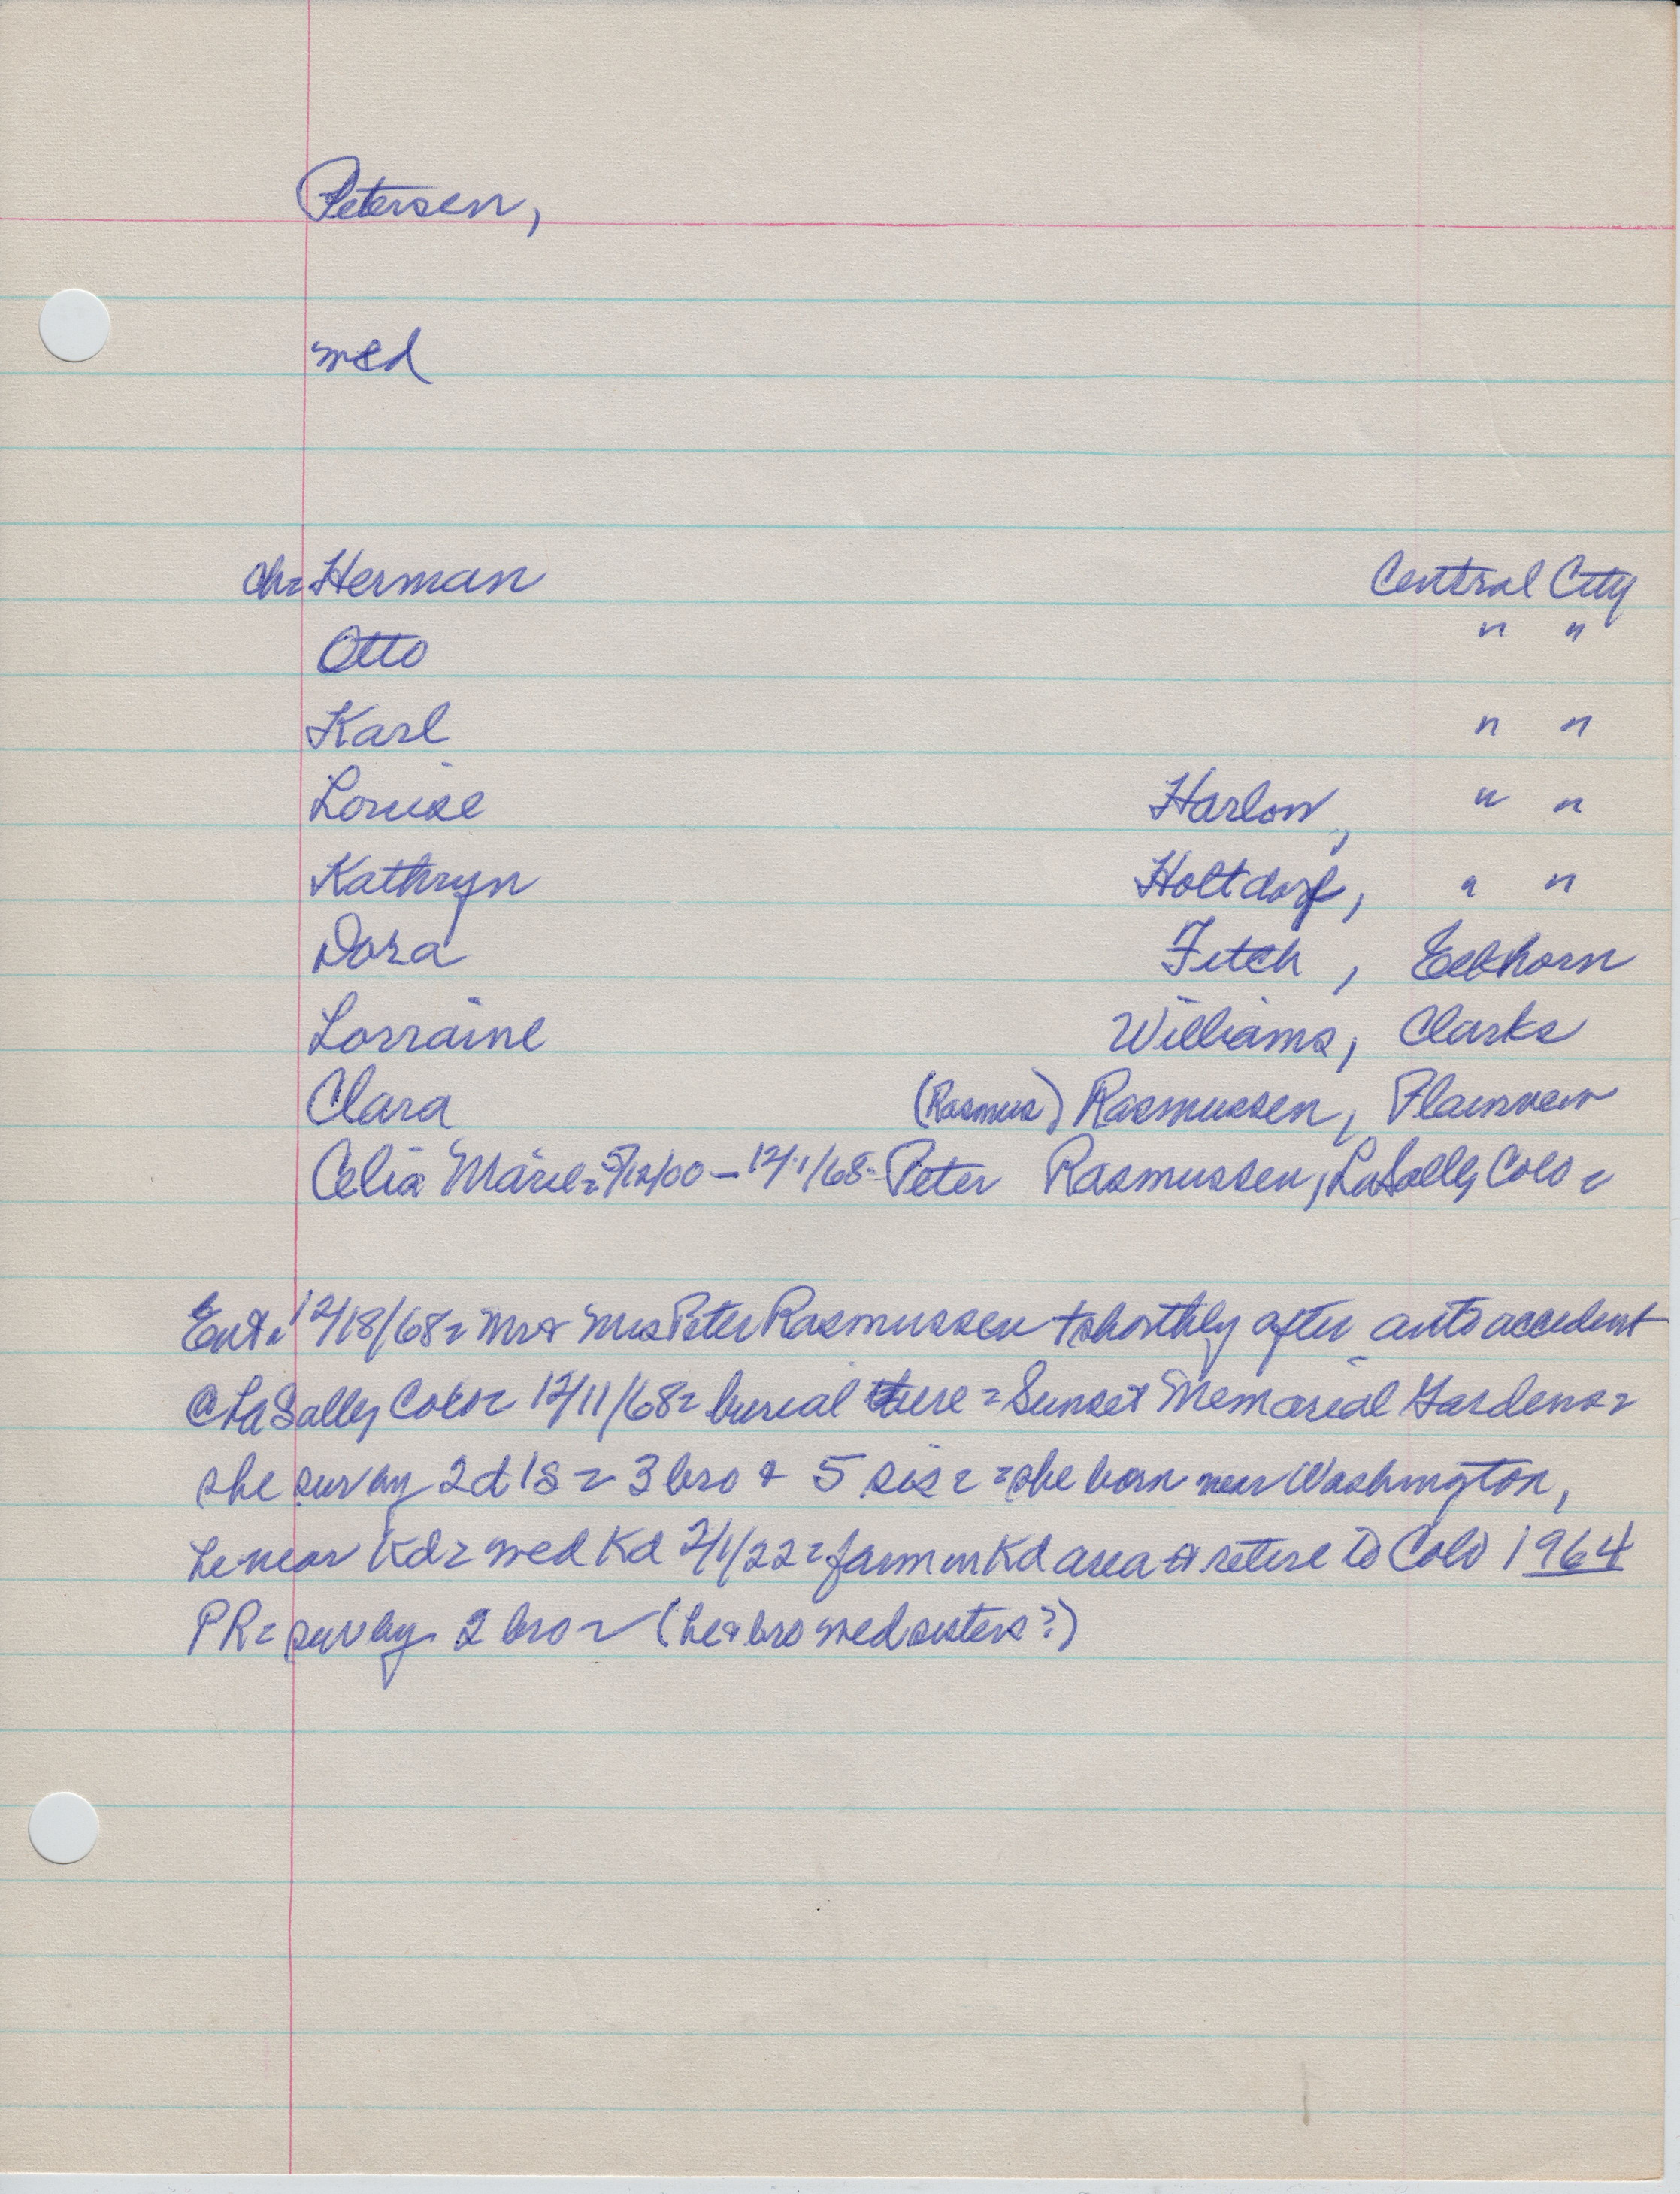 Petersen,
med
ch= Herman Central City
Otto " "
Karl " "
Louise Harlow, " "
Kathryn Holtdorf, " "
Dora Fitch, Elkhorn
Lorraine Williams, Clarks
Clara (Rasmus) Rasmussen, Plainview
Celia Marie= 5/12/00 - 12/11/68= Peter Rasmussen, LaSalle, Colo =
Ent= 12/18/68= Mr & Mrs Peter Rasmussen + shortly after auto accident
@ LaSalle, Colo= 12/11/68= burial there = Sunset Memorial Gardens=
she sur by 2 d 1 s = 3 bro & 5 sis = = she born near Washington,
he near Kd= med Kd 2/1/22= farm in Kd area & retire to Colo 1964
PR= sur by 2 bro = (he & bro med sisters?)